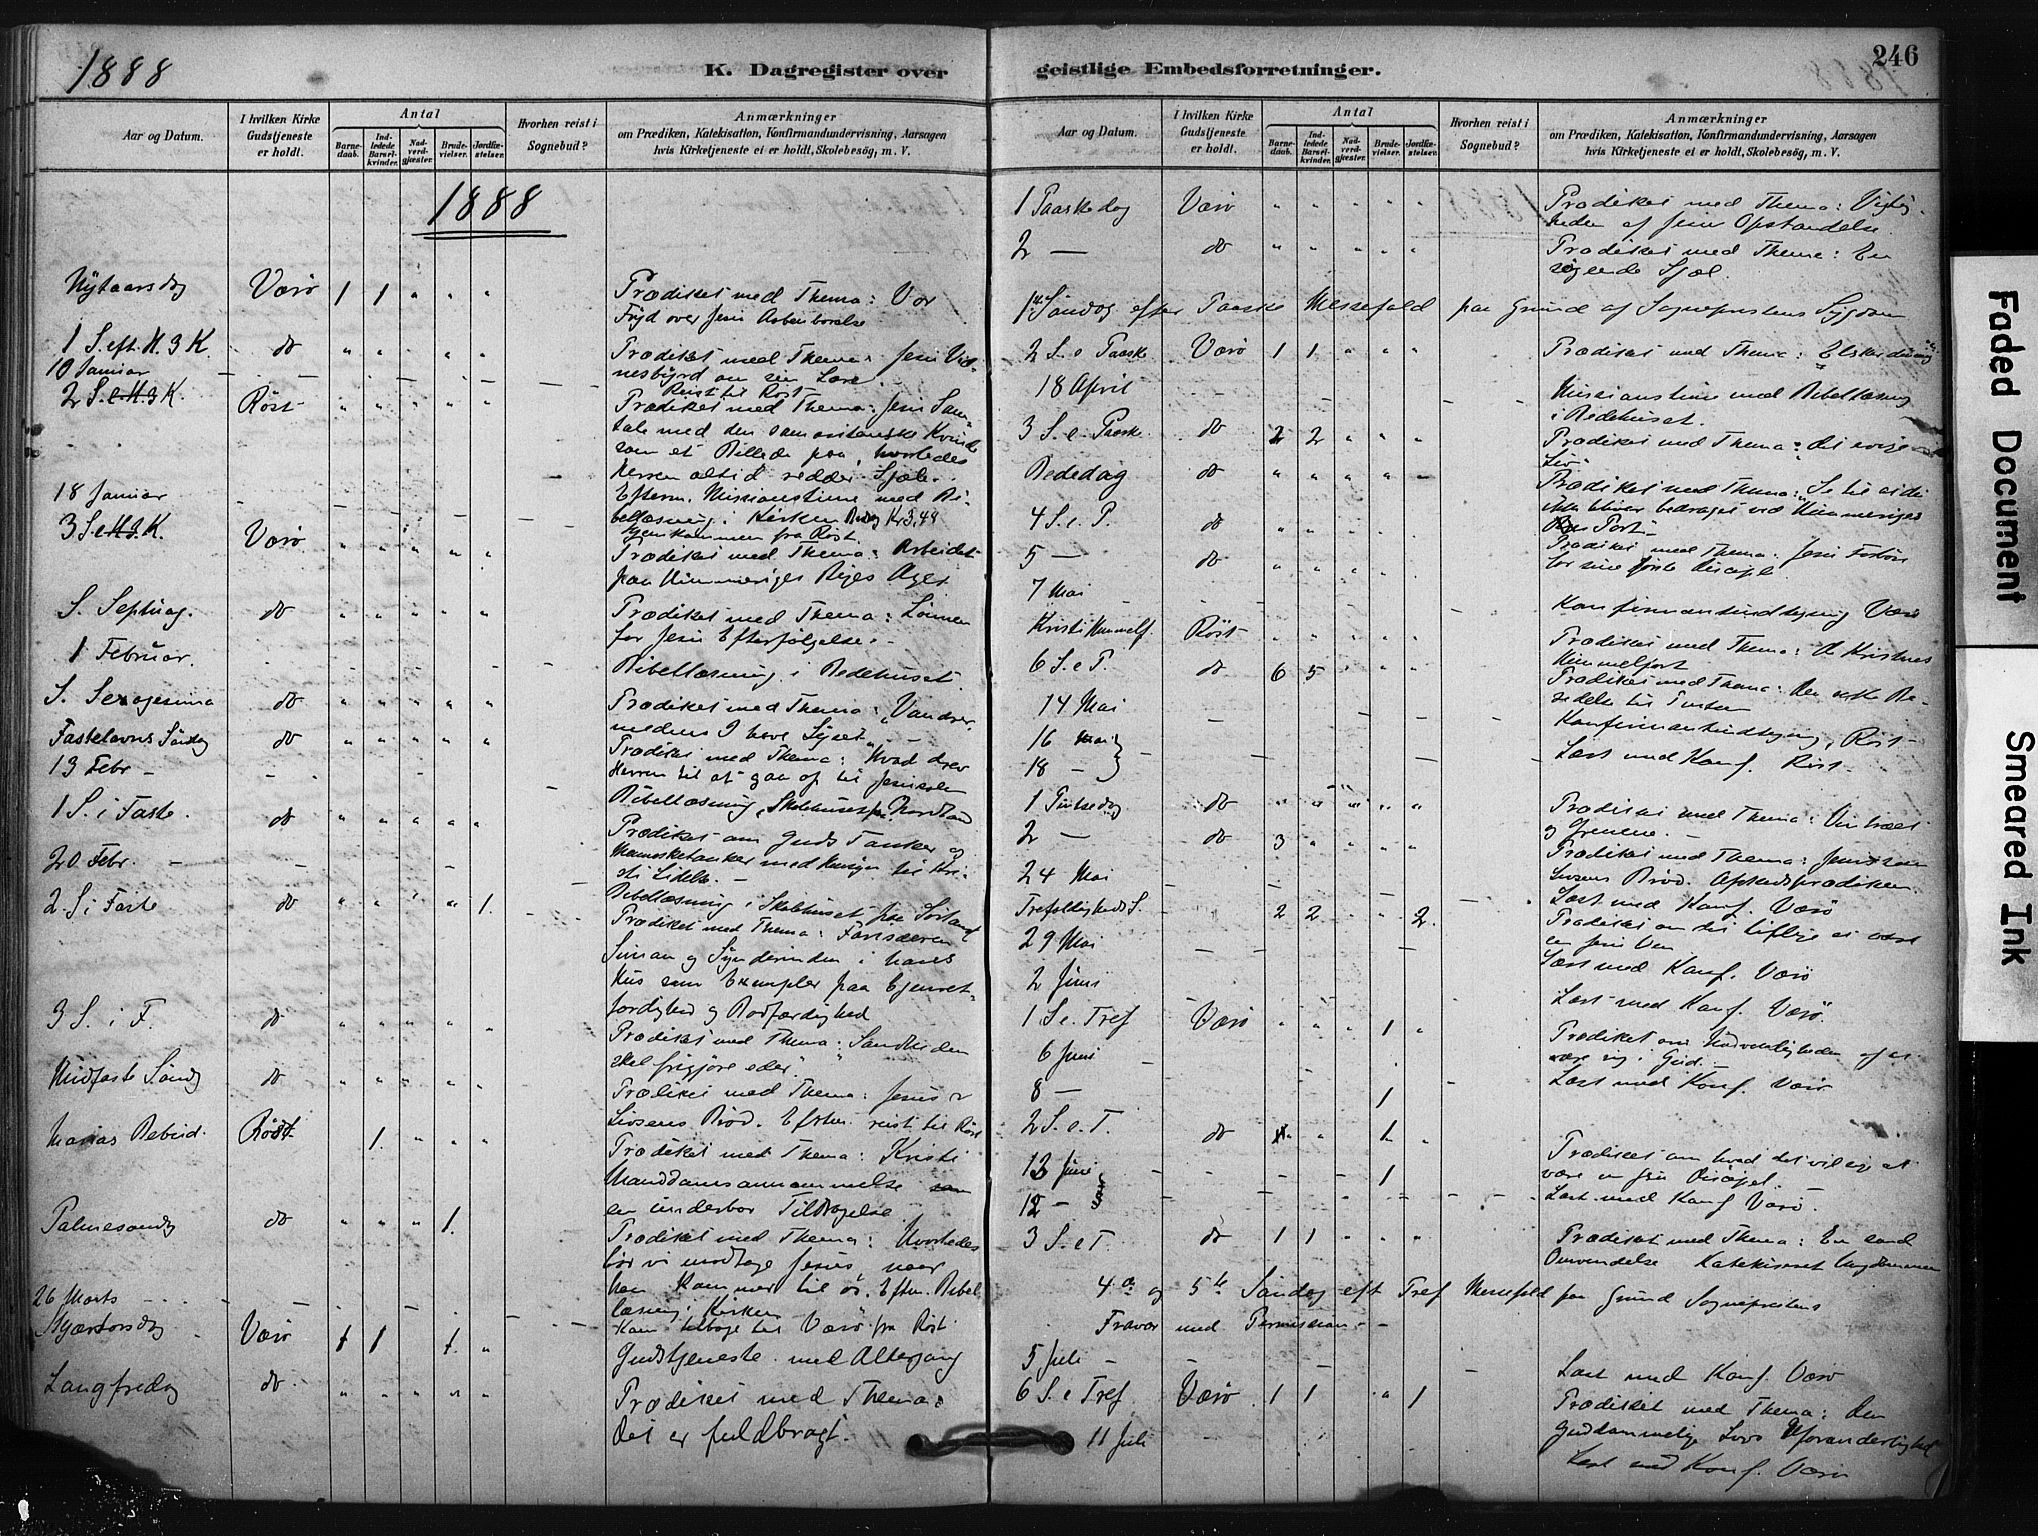 1888
K. Dagregister over geistlige Embedsforretninger.
246
Aar og Datum.
I hvilken Kirke Gudstjeneste er holdt.
Antal
Barne-daab.
Ind-ledede Barsel-kvinder.
Nad-verd-gjæster.
Brude-vielser.
Jordfæ-stelser.
Hvorhen reist i Sognebud?
Anmærkninger
om Prædiken, Katekisation, Konfirmandundervisning, Aarsagen
hvis Kirketjeneste ei er holdt, Skolebesög, m. V.
1888
Nytaarsdag Værö 1 1 " " " Prædiket med Thema: Vor
Fryd over Jesu Aabenbarelse
1 S. eft. H. 3 K. do " " " " " Prædiket med Thema: Jesu Vid-
nesbyrd om sin Lære.
10 Januar Reist til Röst
2 S. e. H. 3 K. Röst " " " " " Prædiket med Thema: Jesu Sam-
tale med den samaritanske Kvinde
som et Billede paa, hvorledes
Herren altid redder Sjæle.
Efterm. Missionstime med Bi-
bellæsning i Kirken
18 Januar Hjemkommen fra Röst.
3 S. e. H. 3 K. Værö " " " " " Prædiket med Thema: Arbeidet
paa Himmeriges Riges Ager
S. Septuag. do " " " " " Prædiket med Thema: Lönnen
for Jesu Efterfölgelse.
1 Februar. Bibellæsning i Bedehuset.
S. Sexagesima do " " " " " Prædiket med Thema: Vandrer
medens I have Lyset
Fastelavns Söndag do " " " " " Prædiket med Thema: Hvad drev
Herren til at gaa op til Jerusalem
13 Febr. - Bibellæsning, Skolehuset paa Nordland
1 S. i Faste. do " " " " " Prædiket om Guds Tanker og
Mennesketanker med Hensyn til Kri-
sti Lidelse. -
20 Febr. - Bibellæsning i Skolehuset paa Sörland
2 S. i Faste do " " " " 1. Prædiket med Thema: Farisæeren
Simon og Synderinden i hans
Hus som Exempler paa Egenret-
færdighed og Bodfærdighed
3 S. i F. do " " " " " Prædiket med Thema: "Sandheden
skal frigjöre eder"
Midfaste Söndag do " " " " " Prædiket med Thema: Jesus er
Livsens Bröd. Efterm. reist til Röst
Marias Bebud. Röst 1. " " " Prædiket med Thema: Kristi
Manddomsannammelse
en underbar Tildragelse
Palmesöndag do " " " 1. Prædiket med Thema: Hvorledes
bör vi modtage Jesus, naar
han kommer til os. Efterm. Bibel
læsning i Kirken
26 Marts Kom tilbage til Værö fra Röst.
Skjærtorsdag Værö 1 1 1. " Gudstjeneste med Altergang
Langfredag do " " " " " Prædiket med Thema:
Det er fuldbragt.
Aar og Datum.
I hvilken Kirke Gudstjeneste er holdt.
Antal
Barne-daab.
Ind-ledede Barsel-kvinder.
Nad-verd-gjæster.
Brude-vielser.
Jordfæ-stelser.
Hvorhen reist i Sognebud?
Anmærkninger
om Prædiken, Katekisation, Konfirmandundervisning, Aarsagen
hvis Kirketjeneste ei er holdt, Skolebesög, m. V.
1 Paaskedag Værö " " " " " Prædiket med Thema: Vigtig-
heden af Jesu Opstandelse.
2 — do " " " " " Prædiket med Thema: En
sögende Sjæl.
1ste Söndag efter Paaske Messefald paa Grund af Sognepræstens Sygdom
2 S. e Paaske Værö 1 1 " " " Prædiket med Thema: Elsker du mig
18 April Missionstime med Bibellæsning
i Bedehuset.
3 S. e. Paaske. do 2 2 " " " Prædiket med Thema: det evige
Liv
Bededag do " " " " - Prædiket med Thema: Se til at du
ikke bliver bedraget ved Himmeriges
Port
4 S. e. P. do " " " "
5 — do " " " " Prædiket med Thema: Jesu Forbön
for sine förste Disciple.
7 Mai Konfirmantindtegning Værö
Kristi Himmelf. Röst " " " " " Prædiket med Thema: De Kristnes
Himmelfart.
6 S. e P. do 6 5 " " " Prædiket med Thema: Den rette Be-
redelse til Pintsen
14 Mai Konfirmantindtegning, Röst
16 Mai
18 — Læst med Konf. Röst.
1 Pintsedag do " " " " " Prædiket med Thema: Vintræet
og Grenene. -
2 — do 3 " " " " Prædiket med Thema: Jesus som
Livsens Bröd. Afskedsprædiken.
24 Mai Læst med Konf. Værö
Trefoldigheds S. 2 2 " " 2. Prædiket om det liflige at være
en Jesu Ven
29 Mai Læst med Konf. Værö
2 Juni Læst med Konf. Værö.
1 S e. Tref Værö " " " 1 " Prædiket om Nödvendigheden af at
være rig i Gud.
6 Juni Læst med Konf. Værö
8 — 1
2 S. e. T. do " " 1 " Prædiket om hvad det vil sige at
være en Jesu Discipel.
13 Juni 1
12 — Læst med Konf Værö.
3 S. e T. do 1 1 " " " Prædiket med Thema: En sand
Omvendelse Katekiseret Ungdommen
4de og 5te Söndag eft Tref Messefald paa Grund Sognepræstens
Fravær med Permission.
5 Juli Læst med Konf. Værö
6 S. e Tref Værö 1 1 " 1 Prædiket med Thema: Den
guddommelige Lovs Uforanderlighed
11 Juli Læst med Konf. Værö
Faded Document
Smeared Ink